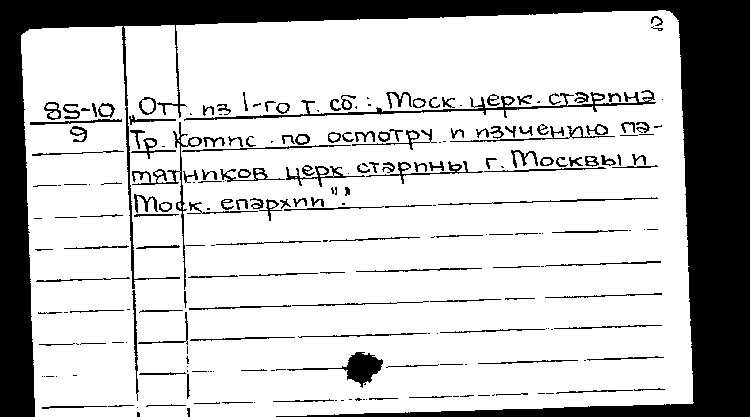 2
85-10 „Отт. из 1-го т. сб.: „Моск. церк. старина
9 Тр. Комис. по осмотру и изучению па-
мятников церк старины г. Москвы и
Моск. епархии".“